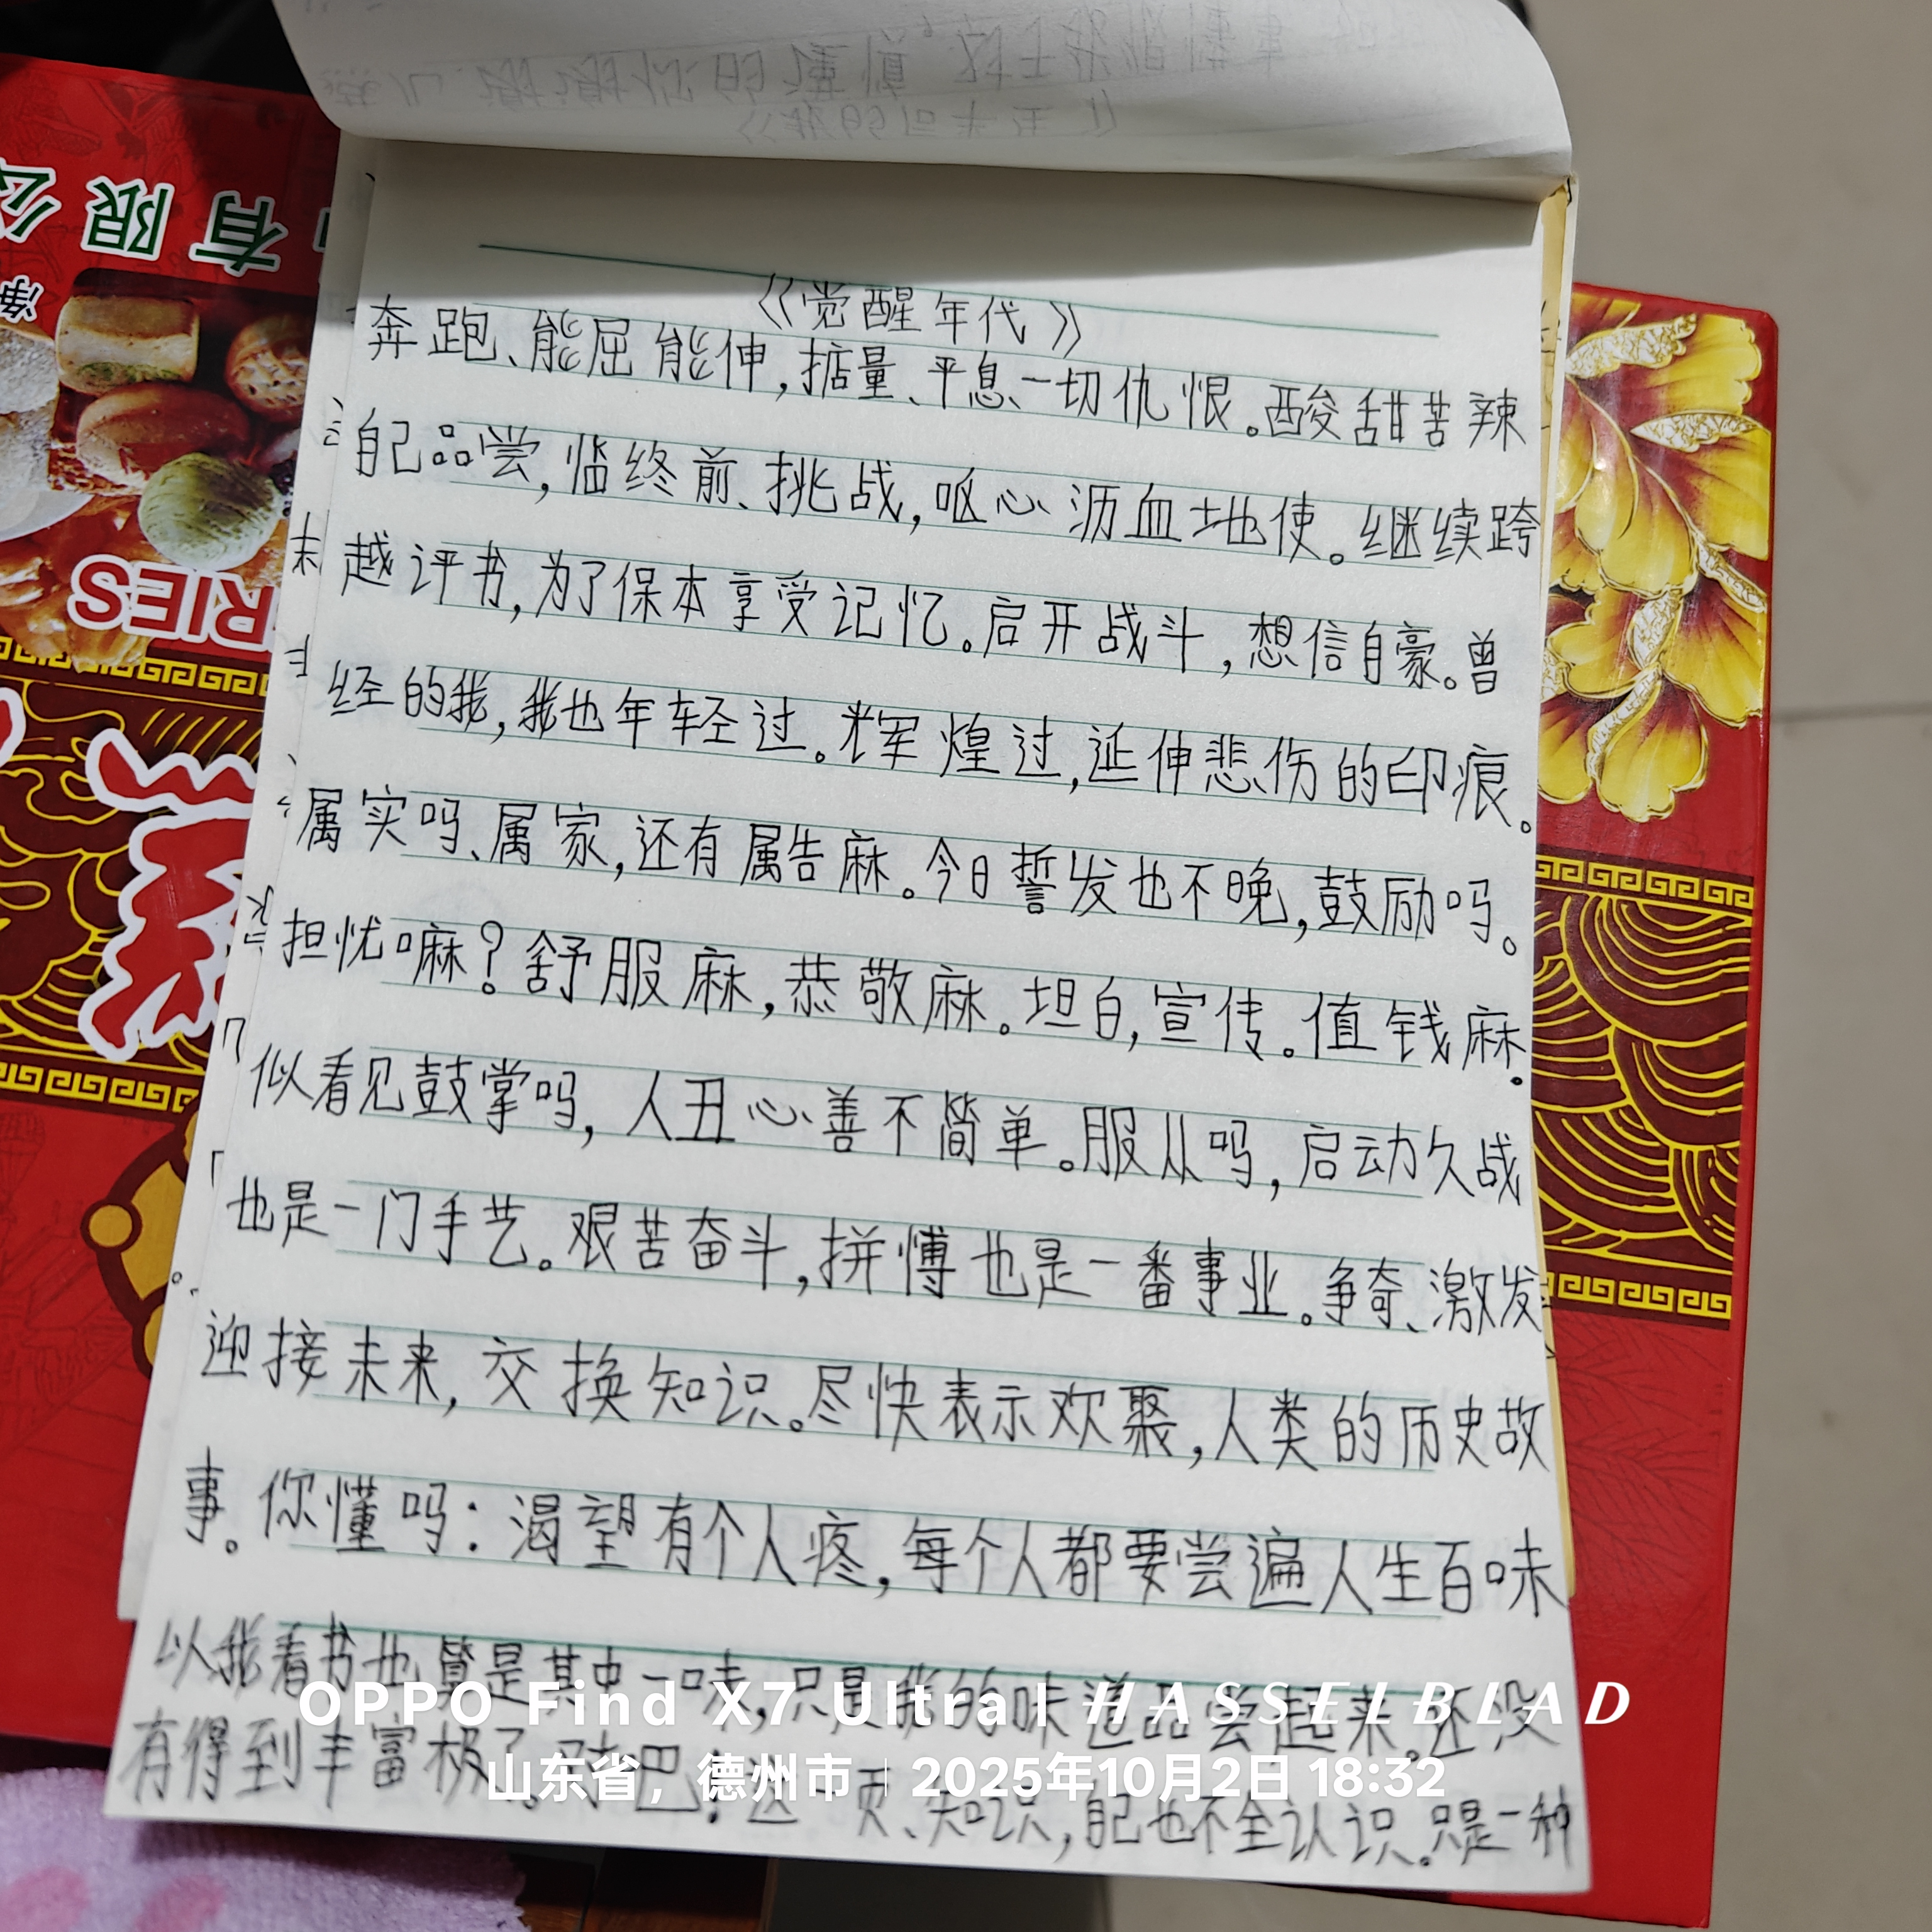 有限公
净
RIES
《觉醒年代》
奔跑、能屈能伸,掂量、平息一切仇恨。酸甜苦辣
自己品尝,临终前、挑战,呕心沥血地使。继续跨
越评书,为了保本享受记忆。启开战斗,想信自豪。曾
经的我,我也年轻过。辉煌过,延伸悲伤的印痕。
属实吗、属家,还有属告麻。今日誓发也不晚,鼓励吗。
担忧嘛?舒服麻,恭敬麻。坦白,宣传。值钱麻.
似看见鼓掌吗,人丑心善不简单。服从吗,启动久战
也是一门手艺。艰苦奋斗,拼愽也是一番事业。争奇、激发
迎接未来,交换知识。尽快表示欢聚,人类的历史故
事。你懂吗:渴望有个人疼,每个人都要尝遍人生百味
以我看书也算是其中一味,只是我的味道品尝起来。还没
有得到丰富极了。对巴!这一页、知识,自己也不全认识。只是一种
OPPO Find X7 Ultra | HASSELBLAD
山东省,德州市 | 2025年10月2日 18:32